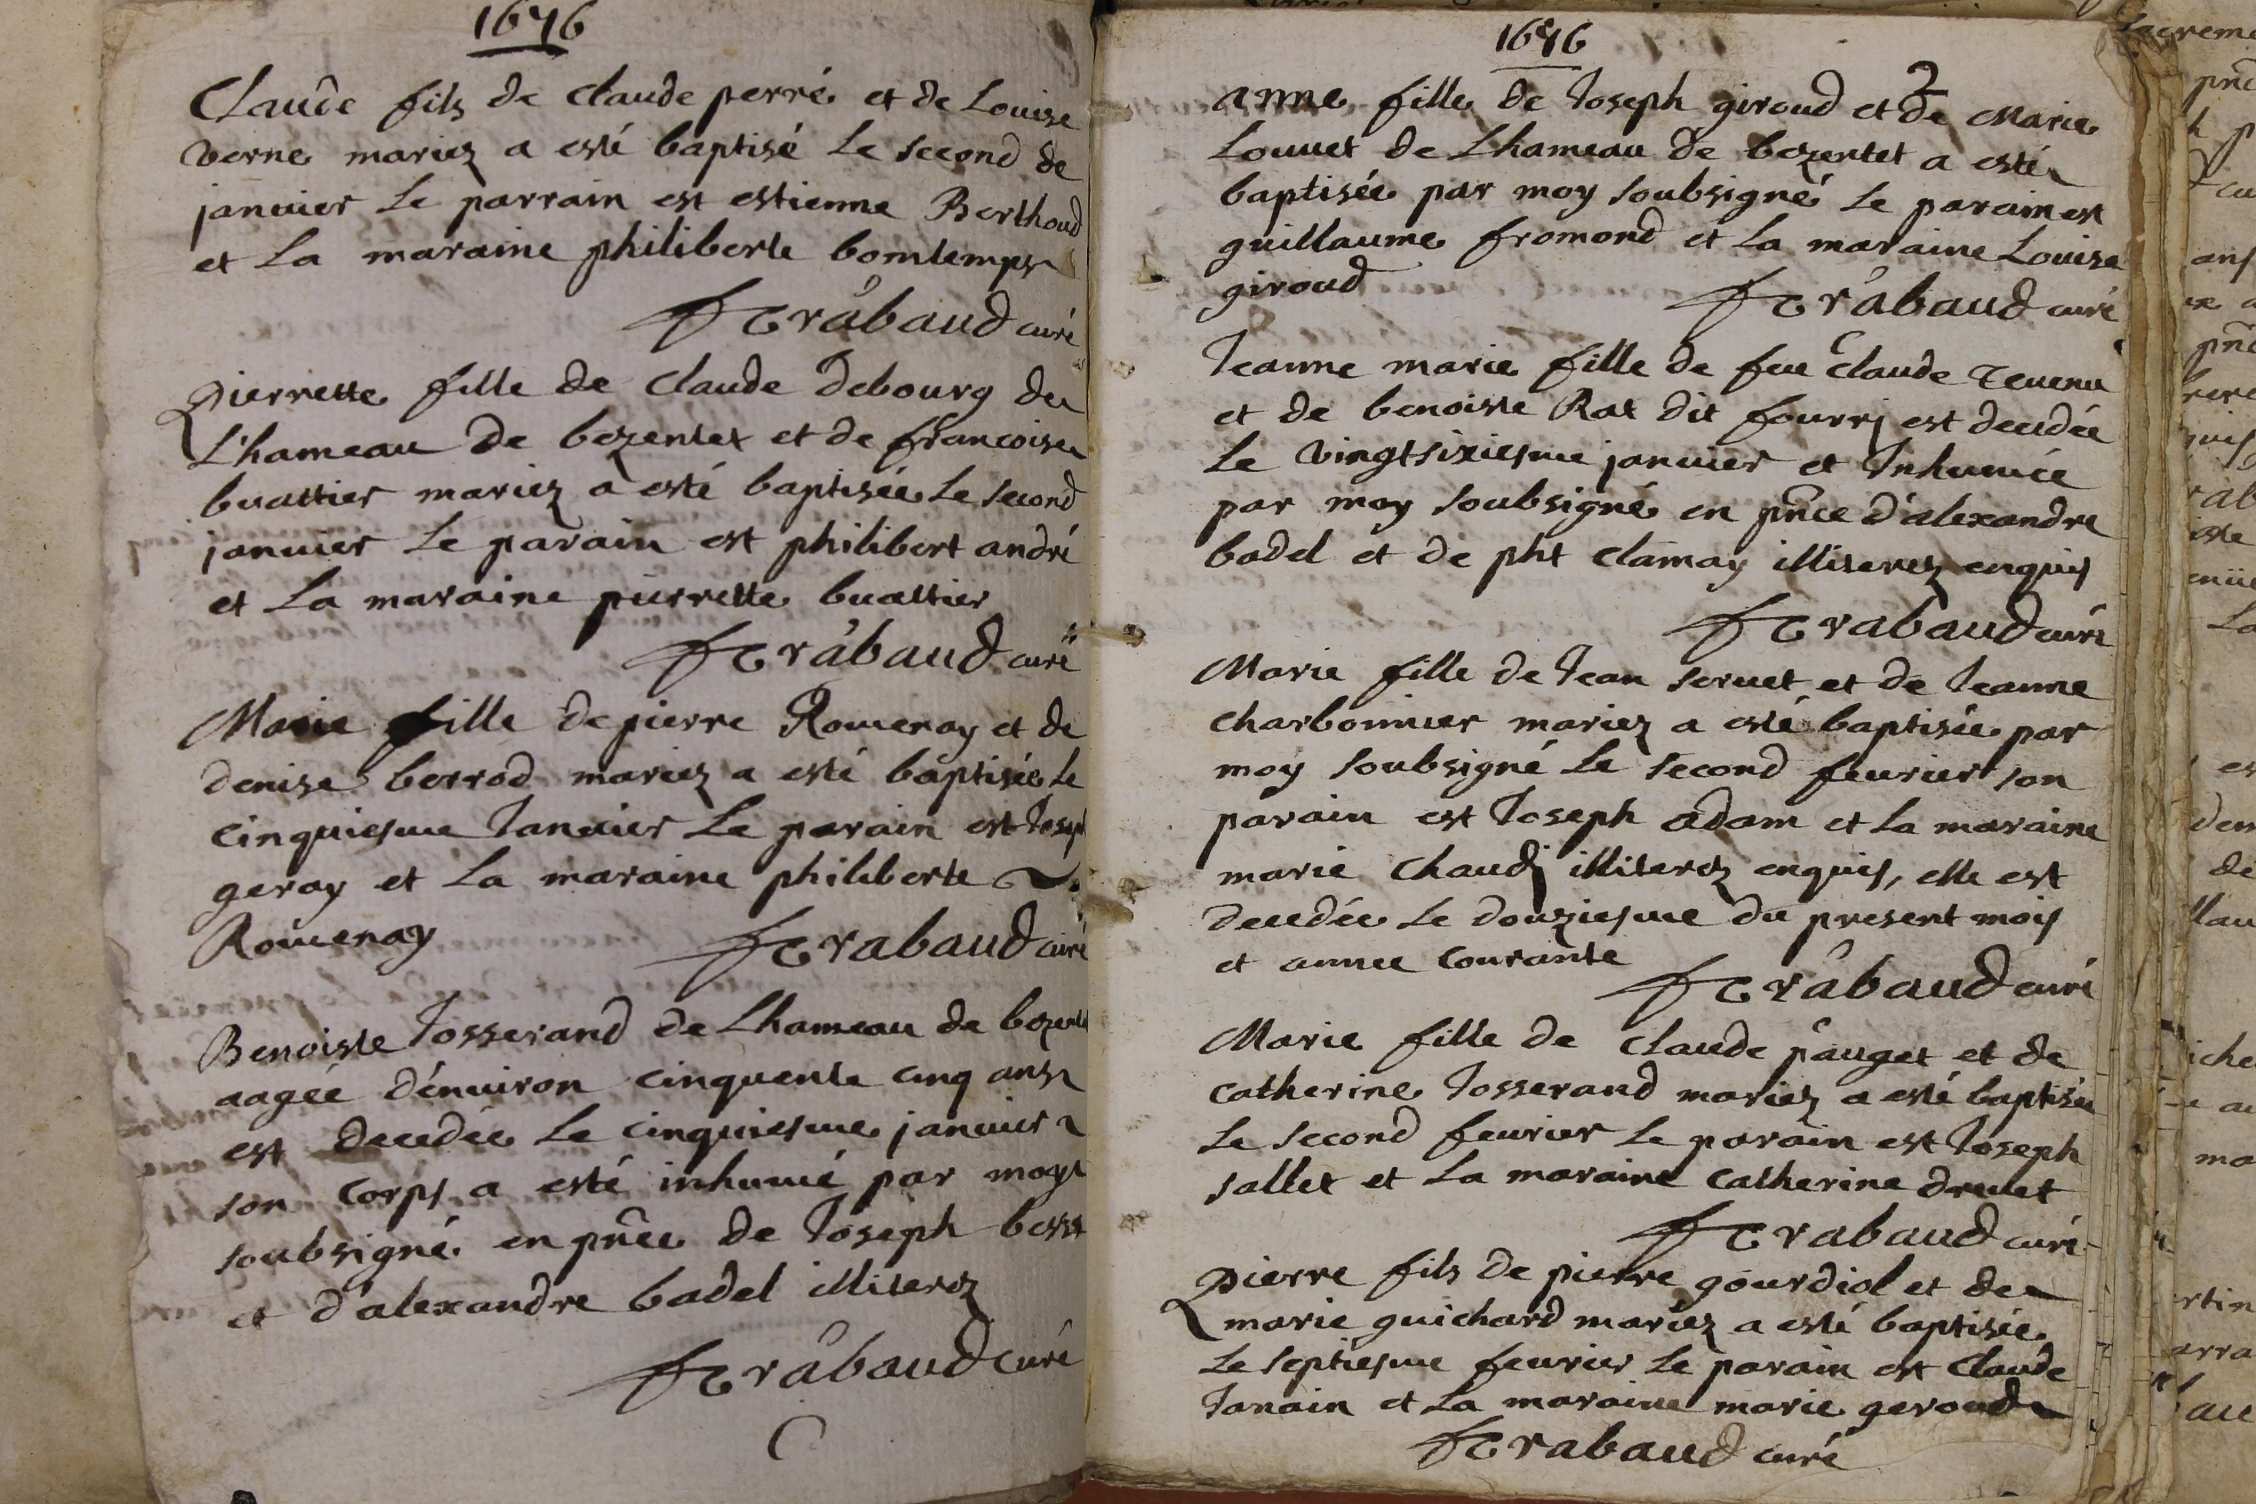 1676
Claude fils de Claude perré et de Louise
verne mariez a esté baptisé le second de
januier le parrain est estienne Berthoud
et la maraine philiberte bontemps
Trabaud curé
pierrette fille de Claude Debourg de
L'hameau de bezentet et de francoise
buattier mariez a esté baptisée le second
januier le parain est philibert andré
et La maraine pierrette buattier
Trabaud curé
Marie fille de pierre Romenay et de
denise berrod mariez a esté baptisée le
cinquiesme Januier Le parain est Joseph
geray et La maraine philiberte
Romenay Trabaud curé
Benoiste Josserand de Lhameau de bezentet
aagée d'enuiron cinquente cinq ans
est decedée le cinquiesme januier
son corps a esté inhumé par moy
soubsigné en pnce de Joseph
et d'alexandre badel illiterez
Trabaud curé
1676
2
anne fille de Joseph giroud et de Marie
Louuet de Lhameau de bezentet a esté
baptisée par moy soubsigné le parain est
guillaume fromond et la maraine Louise
giroud Trabaud curé
Jeanne marie fille de feu Claude Teuenu
et de benoiste Rat dit fourrj est decedée
le vingtsixiesme januier et Inhumée
par moy soubsigné en pnce d'alexandre
badel et de pht Clamay illiterez enquis
Trabaud curé
Marie fille de Jean seruet et de Jeanne
charbonnier mariez a esté baptisée par
moy soubsigné le second feurier son
parain est Joseph adam et la maraine
marie Chaudj illiterez enquis, elle est
decedée le douziesme du present mois
et annee courante Trabaud curé
Marie fille de Claude pauget et de
catherine Josserand mariez a esté baptisée
le second feurier le parain est Joseph
sallet et La maraine Catherine druet
Trabaud curé
pierre fils de pierre gourdiol et de
marie guichard mariez a esté baptisée
le septiesme feurier le parain est Claude
Janain et La maraine marie geroud
Trabaud curé